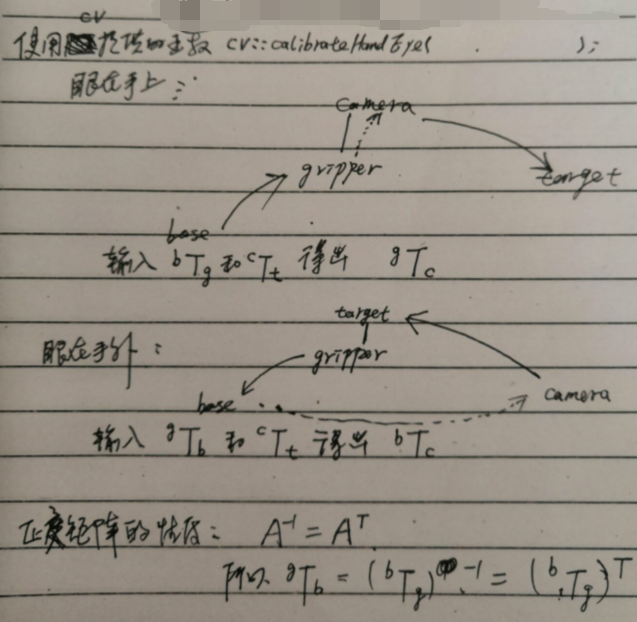 使用cv提供的函数 cv::calibrateHandEye( );
眼在手上:
camera
gripper
target
base
输入 bTg 和 cTt 得出 gTc
target
眼在手外:
gripper
base
camera
输入 gTb 和 cTt 得出 bTc
正交矩阵的性质: A⁻¹ = Aᵀ
所以 gTb = (bTg)⁻¹ = (bTg)ᵀ